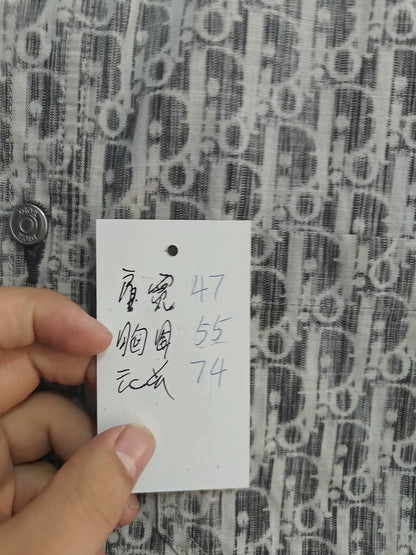 肩宽 47
胸围 55
衣长 74
DIOR